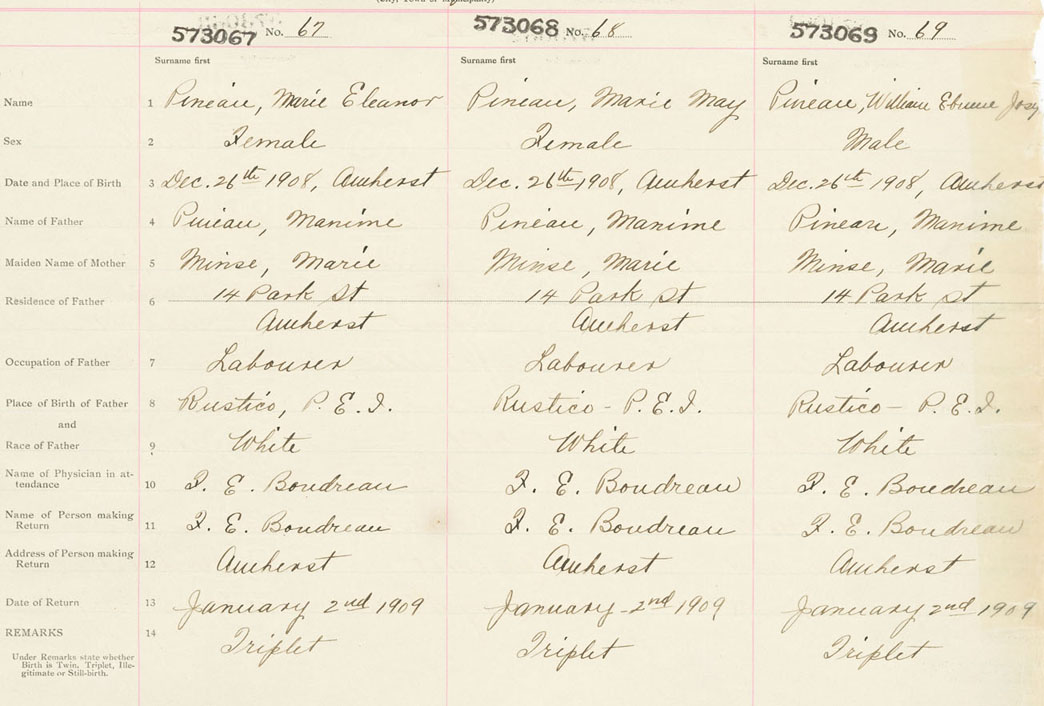 573067 No. 67 573068 No. 68 573069 No. 69
Surname first Surname first Surname first
Name 1 Pineau, Marie Eleanor Pineau, Marie May Pineau, William
Sex 2 Female Female Male
Date and Place of Birth 3 Dec. 26th 1908, Amherst Dec. 26th 1908, Amherst Dec. 26th 1908, Amherst
Name of Father 4 Pineau, Manime Pineau, Manime Pineau, Manime
Maiden Name of Mother 5 Minse, Marie Minse, Marie Minse, Marie
Residence of Father 6 14 Park St 14 Park St 14 Park St
Amherst Amherst Amherst
Occupation of Father 7 Labourer Labourer Labourer
Place of Birth of Father 8 Rustico, P.E.I. Rustico - P.E.I. Rustico - P.E.I.
and
Race of Father 9 White White White
?
Name of Physician in at-
tendance 10 F. E. Boudreau F. E. Boudreau F. E. Boudreau
Name of Person making
Return 11 F. E. Boudreau F. E. Boudreau F. E. Boudreau
Address of Person making
Return 12 Amherst Amherst Amherst
Date of Return 13 January 2nd 1909 January - 2nd 1909 January 2nd 1909
REMARKS 14 Triplet Triplet Triplet
Under Remarks state whether
Birth is Twin, Triplet, Ille-
gitimate or Still-birth.